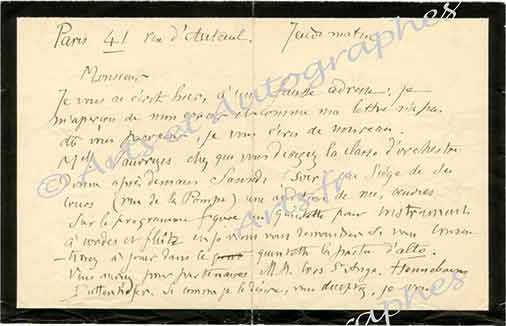 Paris 41 rue d'Auteuil. Jeudi matin
Monsieur
Je vous ai écrit hier, à une fausse adresse; je
m'aperçois de mon et comme ma lettre n'a pas
dû vous parvenir, je vous écris de nouveau.
Melle chez qui vous dirigez la classe d'orchestre
donne après demain Samedi Soir au Siège de Ses
cours (rue de la Pompe) une audition de mes œuvres
Sur le programme figure un quintette pour instruments
à cordes et flûte et je viens vous demander si vous
à jouer dans ce quintette la partie d'alto.
Vous auriez pour partenaires M.M. Hennebains
Si comme je le désire, vous acceptez, je
© Arts et Autographes
Arts.fr